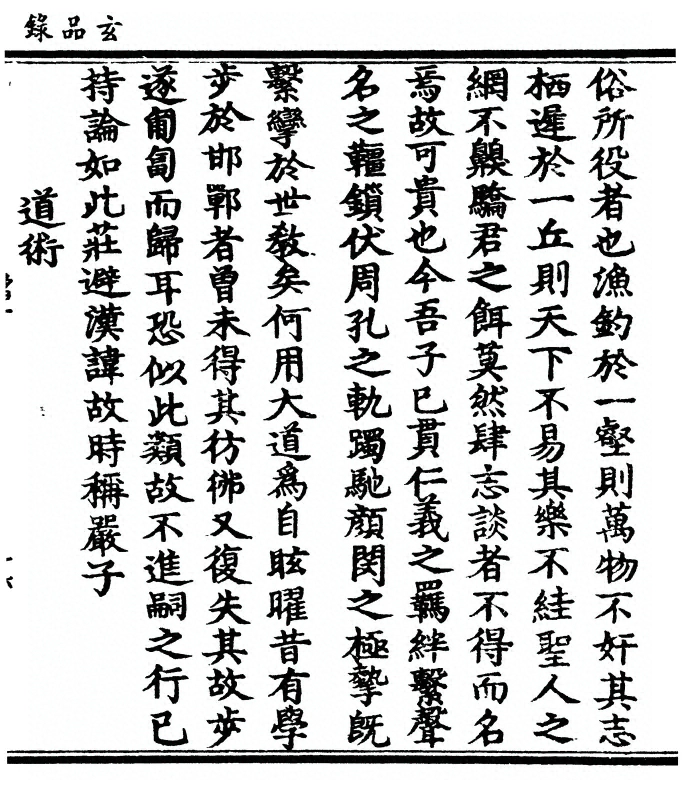 玄品錄
俗所役者也漁釣於一壑則萬物不奸其志
栖遲於一丘則天下不易其樂不絓聖人之
網不齅驕君之餌莫然肆志談者不得而名
焉故可貴也今吾子已貫仁義之羈絆繫聲
名之韁鎖伏周孔之軌躅馳顏閔之極摯旣
繫攣於世敎矣何用大道爲自眩曜昔有學
步於邯鄲者曾未得其彷彿又復失其故步
遂匍匐而歸耳恐似此類故不進嗣之行已
持論如此莊避漢諱故時稱嚴子
道術